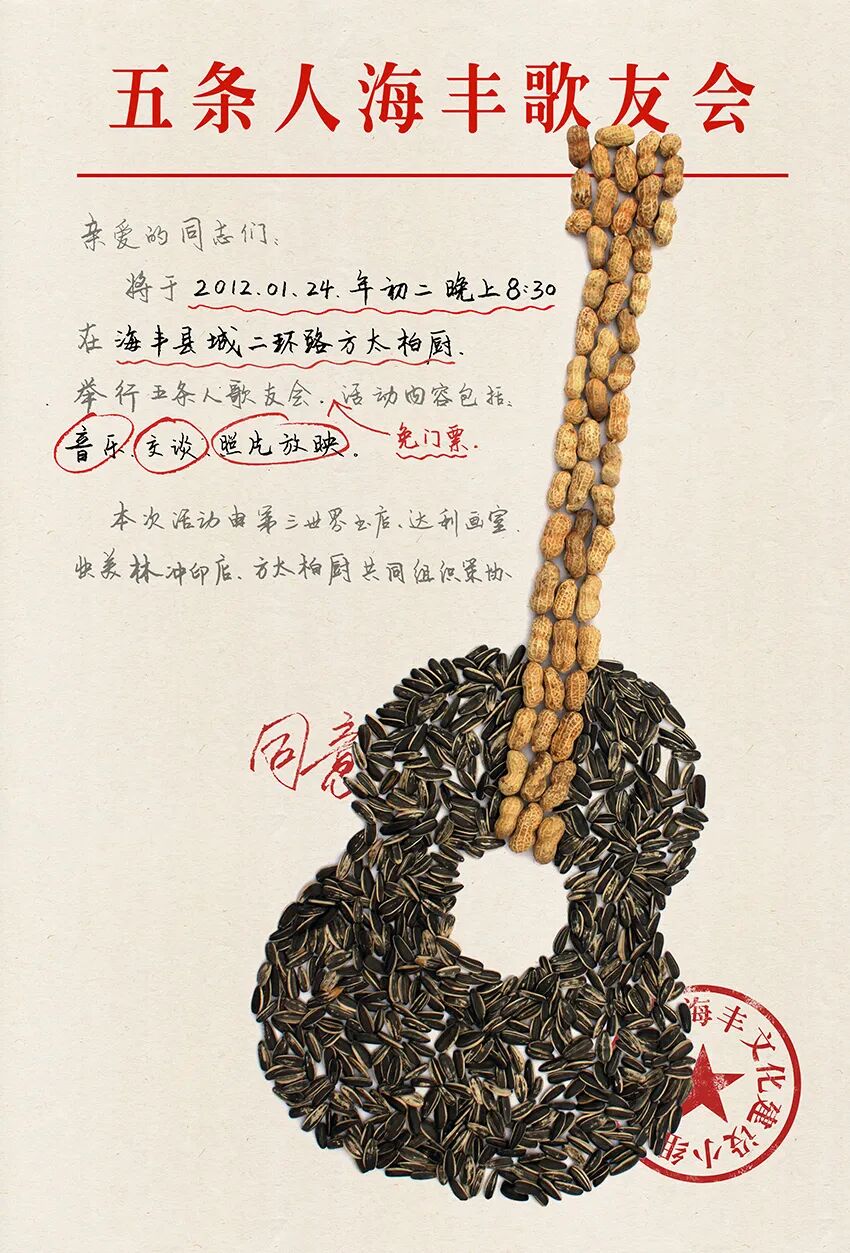 五条人海丰歌友会
亲爱的同志们：
将于 2012.01.24. 年初二晚上8:30
在 海丰县城二环路方太柏厨.
举行五条人歌友会. 活动内容包括:
音乐、交谈、照片放映.
免门票.
本次活动由第三世界书店、达利画室、
快美林冲印店、方太柏厨共同组织策协.
同意
海丰文化建设小组